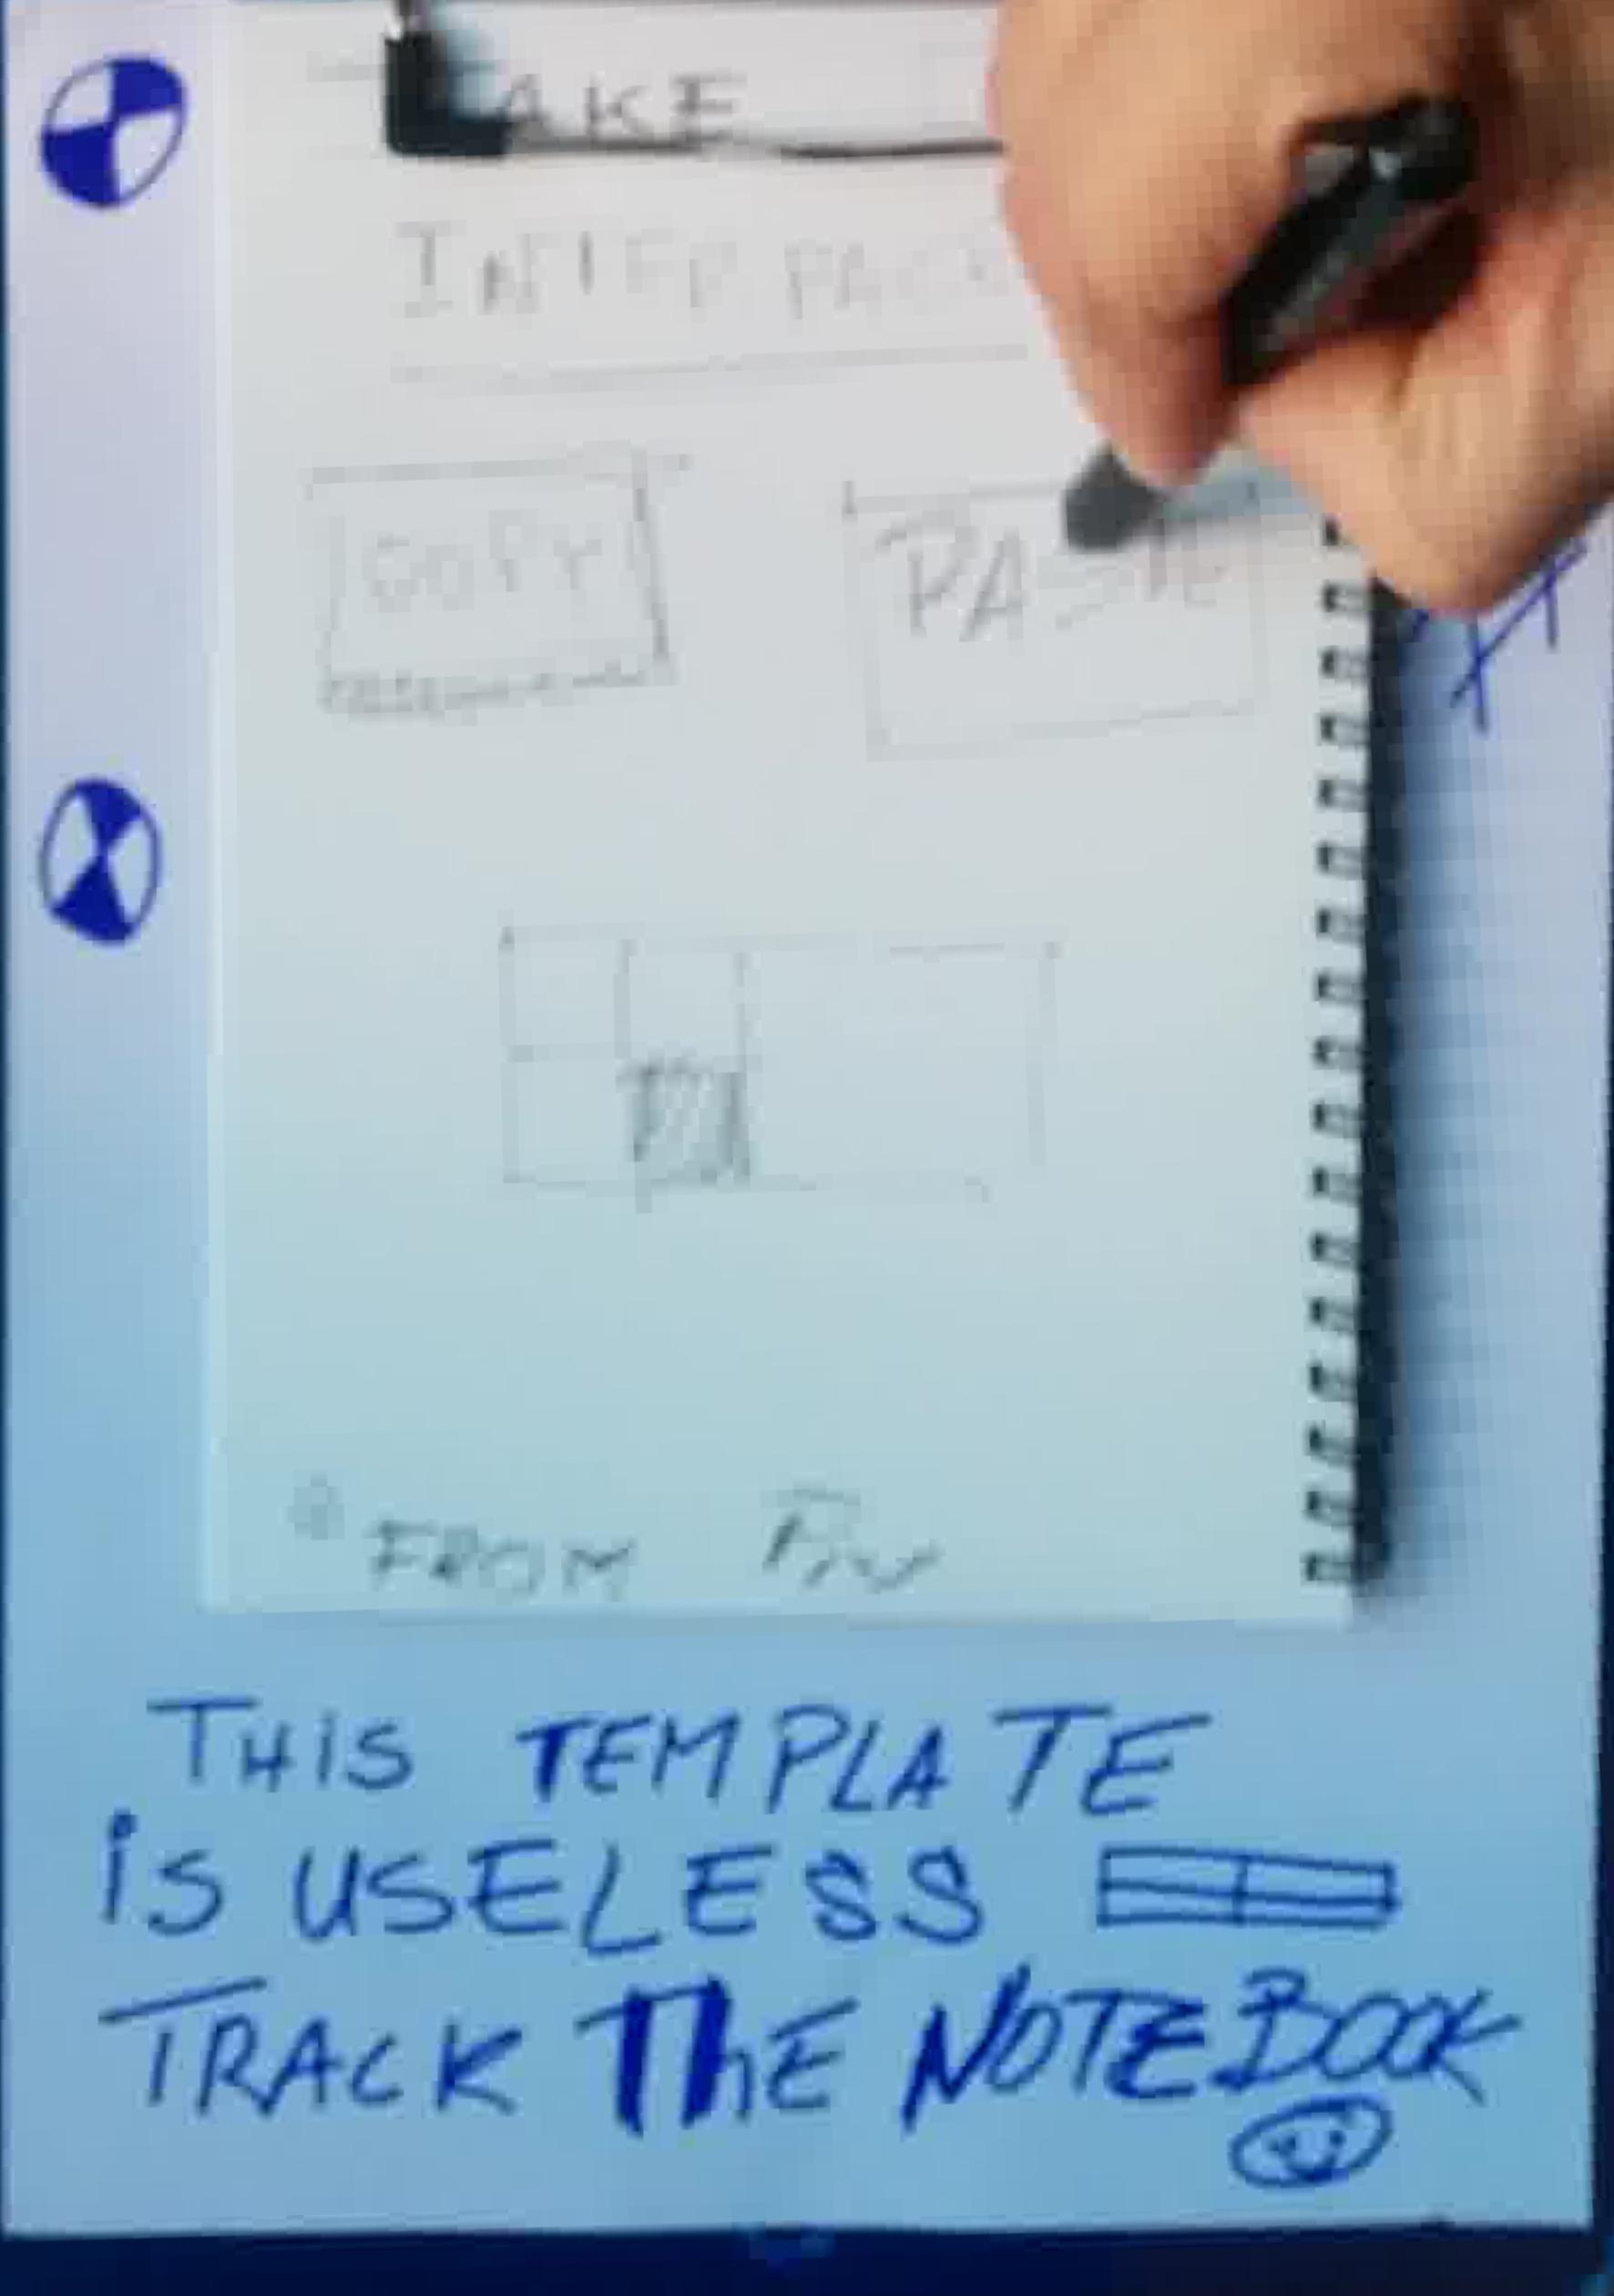 AKE
COPY
PASTE
FROM
THiS TEMPLATE
iS USELESS
TRACK ThE NOTEBOOK